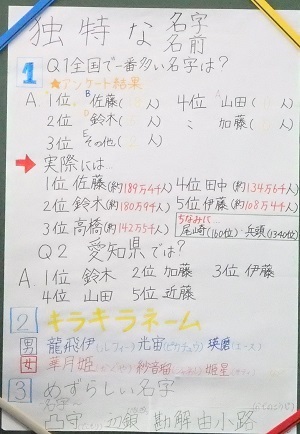 独特な名字
名前
1 Q1全国で一番多い名字は?
★アンケート結果
A. 1位 佐藤( 人) 4位 山田( 人)
2位 鈴木( 人) 〃 加藤( 人)
3位 その他( 人)
➡実際には…
1位 佐藤(約189万4千人) 4位 田中(約134万6千人)
2位 鈴木(約180万9千人) 5位 伊藤(約108万4千人)
3位 高橋(約142万5千人) ちなみに…
尾崎(160位) 兵頭(1340位)
Q2 愛知県では?
A. 1位 鈴木 2位 加藤 3位 伊藤
4位 山田 5位 近藤
2 キラキラネーム
男 龍飛伊(ルフィー) 光宙(ピカチュウ) 瑛磨(エース)
女 華月姫(かぐや) 紗音瑠(しゃねる) 姫星(
3 めずらしい名字
凸守 勘解由小路